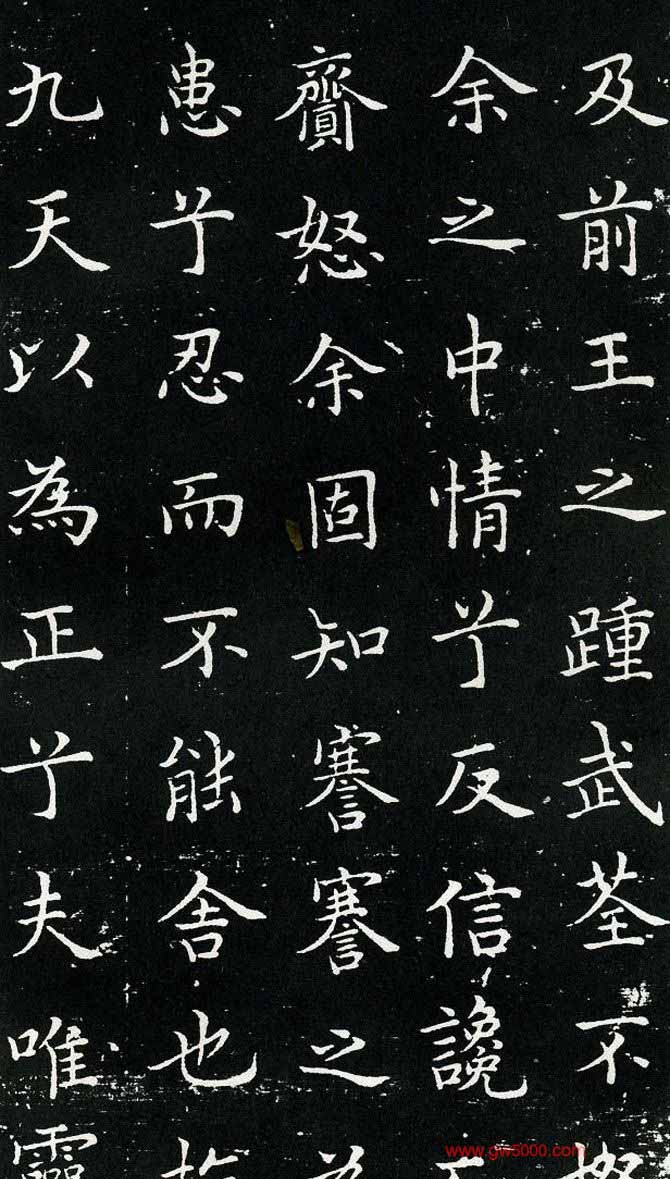 及前王之踵武荃不
余之中情兮反信讒
齎怒余固知謇謇之
患兮忍而不能舍也
九天以為正兮夫唯靈
www.gw5000.com